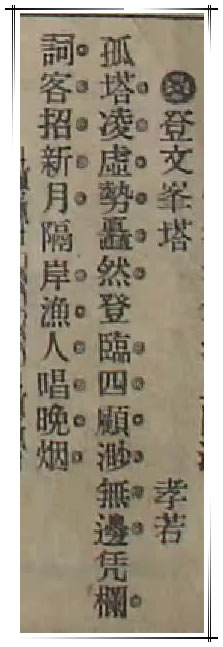 登文峯塔 孝若
孤塔凌虛勢矗然登臨四顧渺無邊凭欄
詞客招新月隔岸漁人唱晚烟